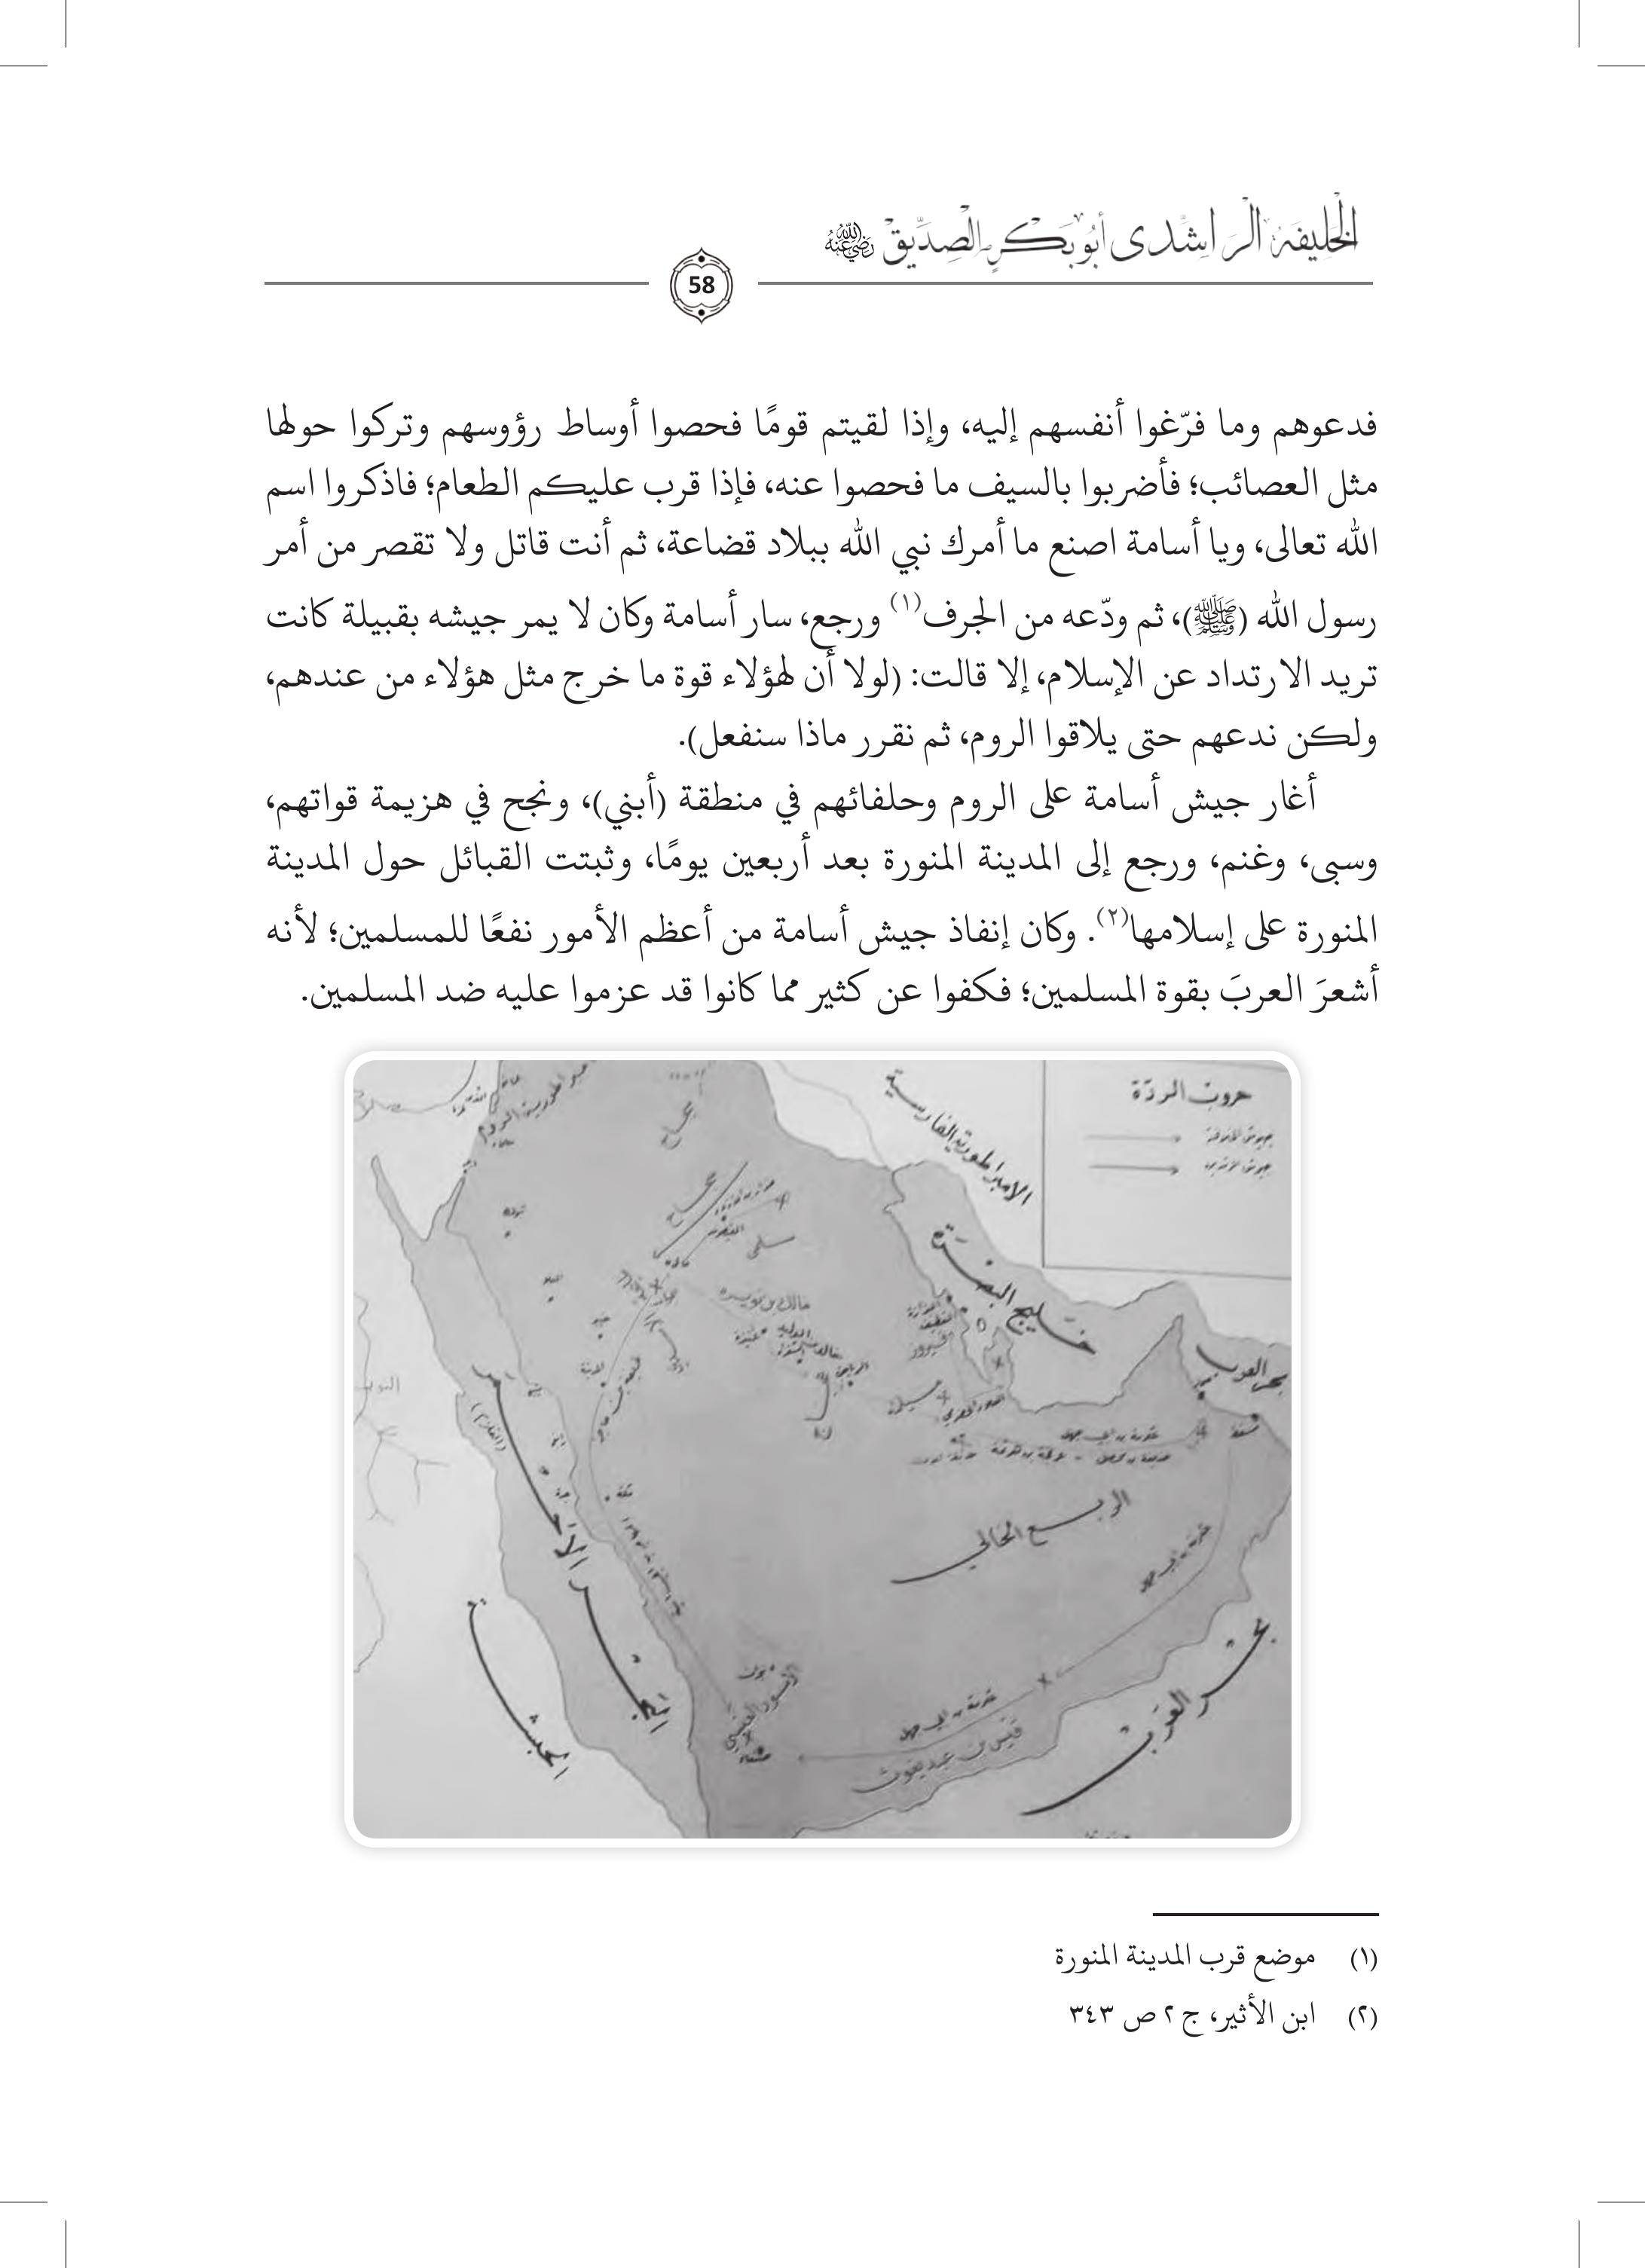 الخليفة الراشدي أبو بكر الصديق رضي الله عنه
58
فدعوهم وما فرّغوا أنفسهم إليه، وإذا لقيتم قومًا فحصوا أوساط رؤوسهم وتركوا حولها
مثل العصائب؛ فأضربوا بالسيف ما فحصوا عنه، فإذا قرب عليكم الطعام؛ فاذكروا اسم
الله تعالى، ويا أسامة اصنع ما أمرك نبي الله ببلاد قضاعة، ثم أنت قاتل ولا تقصر من أمر
رسول الله (ﷺ)، ثم ودّعه من الجرف(١) ورجع، سار أسامة وكان لا يمر جيشه بقبيلة كانت
تريد الارتداد عن الإسلام، إلا قالت: (لولا أن لهؤلاء قوة ما خرج مثل هؤلاء من عندهم،
ولكن ندعهم حتى يلاقوا الروم، ثم نقرر ماذا سنفعل).
أغار جيش أسامة على الروم وحلفائهم في منطقة (أبني)، ونجح في هزيمة قواتهم،
وسبى، وغنم، ورجع إلى المدينة المنورة بعد أربعين يومًا، وثبتت القبائل حول المدينة
المنورة على إسلامها(٢). وكان إنفاذ جيش أسامة من أعظم الأمور نفعًا للمسلمين؛ لأنه
أشعرَ العربَ بقوة المسلمين؛ فكفوا عن كثير مما كانوا قد عزموا عليه ضد المسلمين.
حروب الردة
الامبراطورية الفارسية
خليج البصرة
بحر العرب
سلمى
مالك بن نويرة
الربع الخالي
البحر الأحمر
(القلزم)
الحبشة
مكة
الأسود العنسي
صنعاء
قيس بن عبد يغوث
بحر العرب
(١) موضع قرب المدينة المنورة
(٢) ابن الأثير، ج ٢ ص ٣٤٣